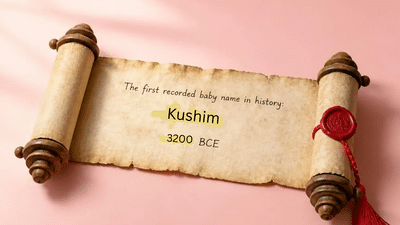 The first recorded baby name in history:
Kushim
3200 BCE